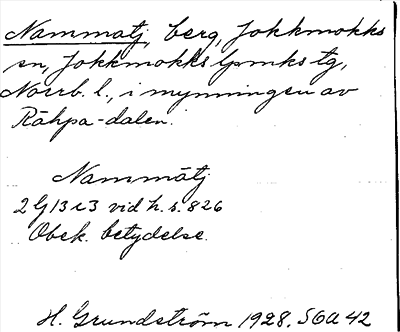 Nammatj, berg, Jokkmokks
sn, Jokkmokks lpmks tg,
Norrb. l., i mynningen av
Råhpa-dalen.
Nammátj
2 G 13 c 3 vid h. s. 826
Obek. betydelse.
H. Grundström 1928, SGA 42